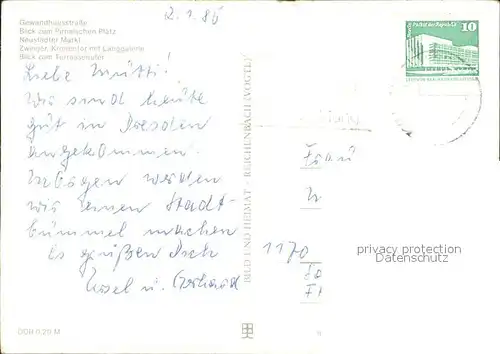 2.1.86
Gewandhausstraße
Blick zum Pirnaischen Platz
Neustädter Markt
Zwinger, Kronentor mit Langgalerie
Blick zum Terrassenufer
10
Liebe Mutti!
Wir sind heute
gut in Dresden
angekommen.
werden
wir einen Stadt-
bummel machen
Es grüßen Dich
Ursel u. Gerhard
BILD UND HEIMAT REICHENBACH (VOGTL)
Frau
1170
privacy protection
Datenschutz
DDR 0,20 M